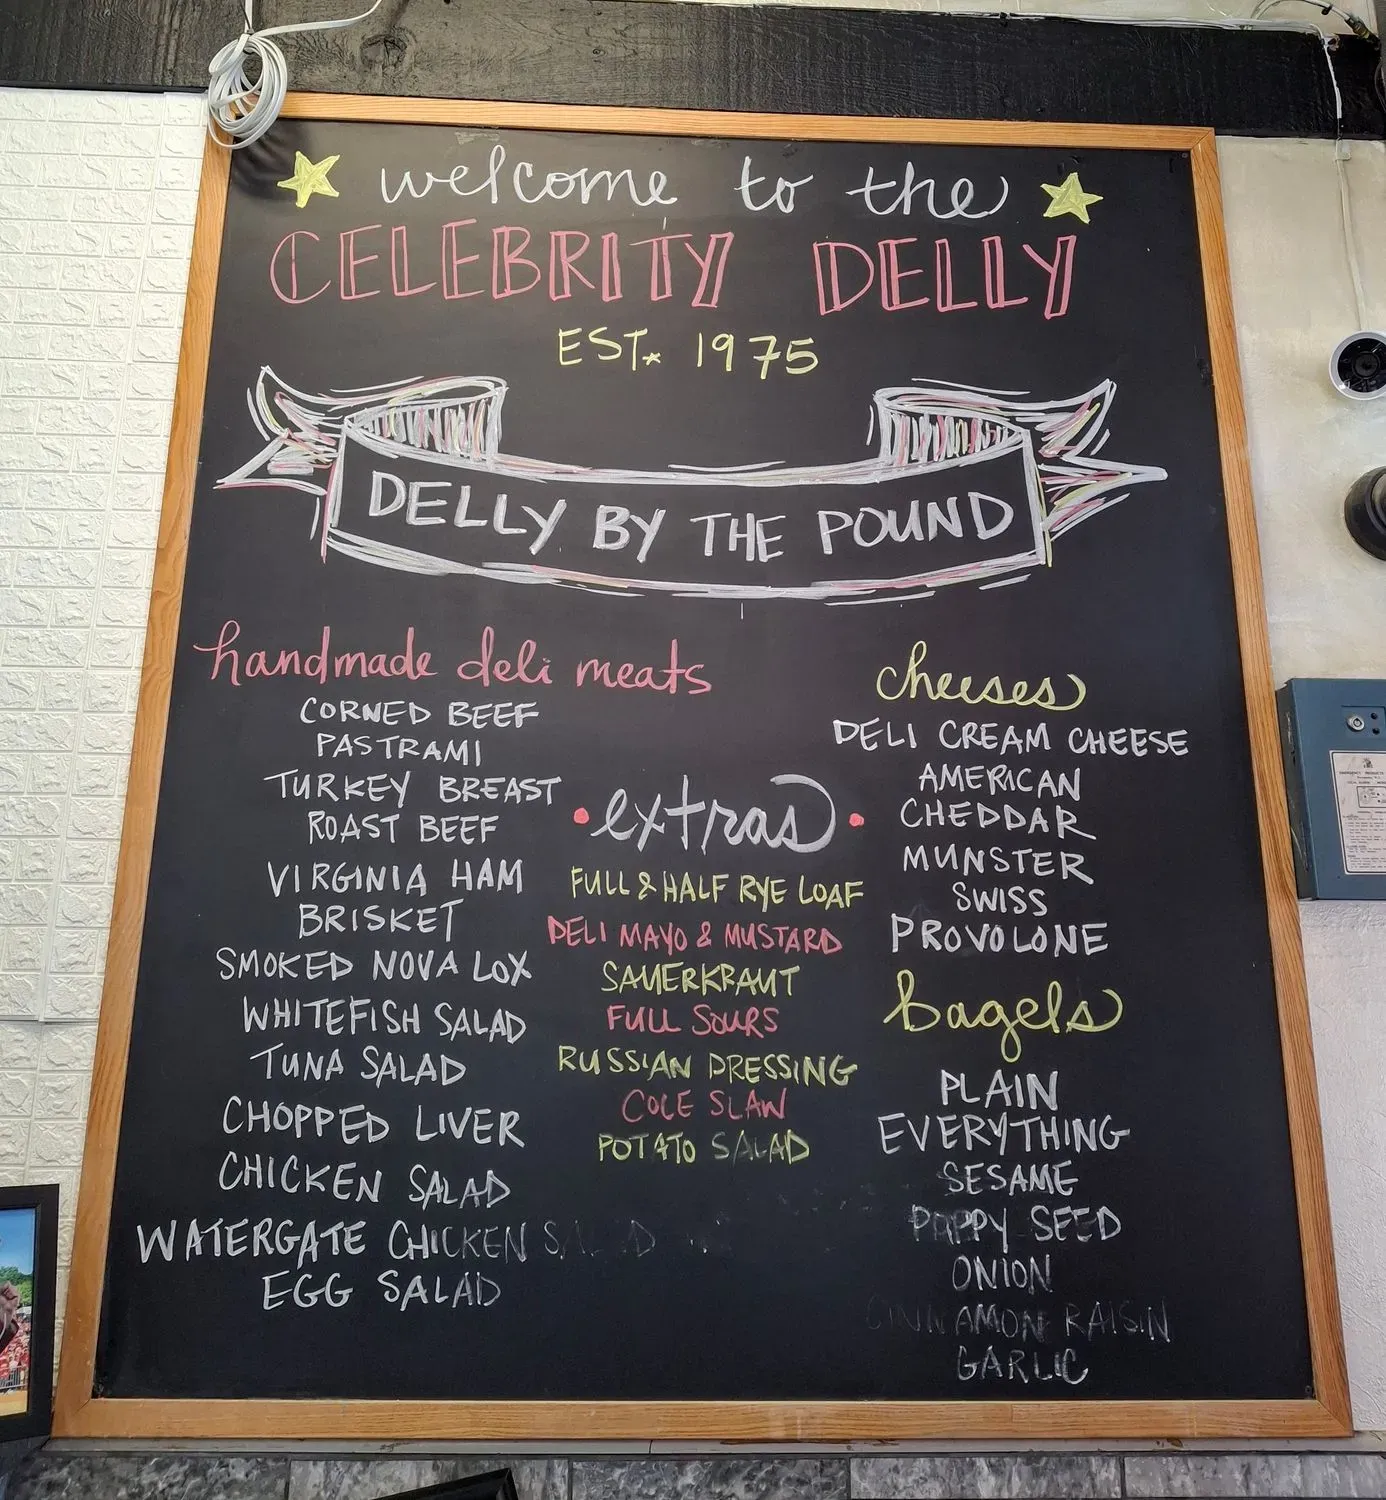 welcome to the
CELEBRITY DELLY
EST. 1975
DELLY BY THE POUND
handmade deli meats
CORNED BEEF
PASTRAMI
TURKEY BREAST
ROAST BEEF
VIRGINIA HAM
BRISKET
SMOKED NOVA LOX
WHITEFISH SALAD
TUNA SALAD
CHOPPED LIVER
CHICKEN SALAD
WATERGATE CHICKEN SALAD
EGG SALAD
extras
FULL & HALF RYE LOAF
DELI MAYO & MUSTARD
SAUERKRAUT
FULL SOURS
RUSSIAN DRESSING
COLE SLAW
POTATO SALAD
cheeses
DELI CREAM CHEESE
AMERICAN
CHEDDAR
MUNSTER
SWISS
PROVOLONE
bagels
PLAIN
EVERYTHING
SESAME
POPPY SEED
ONION
CINNAMON RAISIN
GARLIC